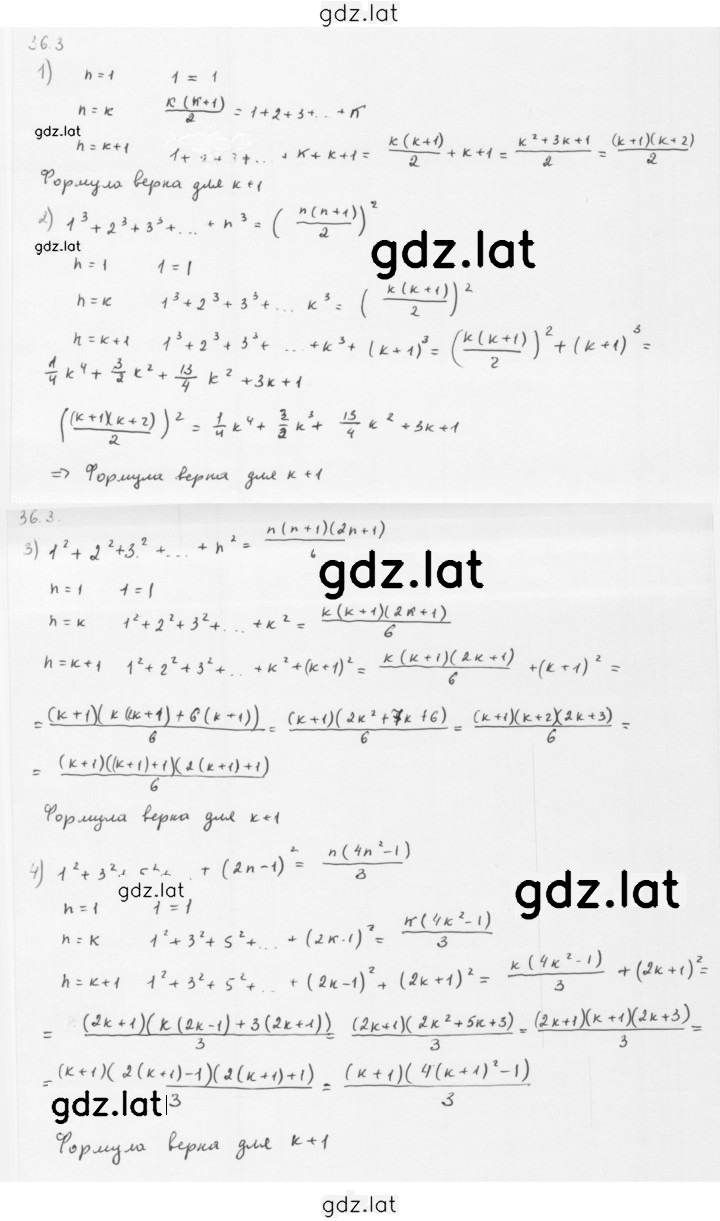 gdz.lat
36.3
1) n=1 1 = 1
n=к к(к+1)/2 = 1+2+3+...+к
gdz.lat
n=к+1 1+2+3+... + к+к+1 = к(к+1)/2 + к+1 = (к²+3к+1)/2 = (к+1)(к+2)/2
Формула верна для к+1
2) 1³+2³+3³+... + n³ = (n(n+1)/2)²
gdz.lat
gdz.lat
n=1 1=1
n=к 1³+2³+3³+... к³ = (к(к+1)/2)²
n=к+1 1³+2³+3³+ ... +к³+ (к+1)³ = (к(к+1)/2)² + (к+1)³ =
1/4 к⁴ + 3/2 к² + 13/4 к² + 3к+1
((к+1)(к+2)/2)² = 1/4 к⁴ + 3/2 к³ + 13/4 к² + 3к+1
=> Формула верна для к+1
36.3.
3) 1²+2²+3²+... + n² = n(n+1)(2n+1)/6
gdz.lat
n=1 1=1
n=к 1²+2²+3²+... +к² = к(к+1)(2к+1)/6
n=к+1 1²+2²+3²+... +к²+(к+1)² = к(к+1)(2к+1)/6 +(к+1)² =
= (к+1)(к((к+1)+6(к+1))/6 = (к+1)(2к²+7к+6)/6 = (к+1)(к+2)(2к+3)/6 =
= (к+1)((к+1)+1)(2(к+1)+1)/6
Формула верна для к+1
4) 1²+3²+5²+... + (2n-1)² = n(4n²-1)/3
gdz.lat
gdz.lat
n=1 1=1
n=к 1²+3²+5²+... +(2к-1)² = к(4к²-1)/3
n=к+1 1²+3²+5²+... +(2к-1)²+(2к+1)² = к(4к²-1)/3 +(2к+1)² =
= (2к+1)(к(2к-1)+3(2к+1))/3 = (2к+1)(2к²+5к+3)/3 = (2к+1)(к+1)(2к+3)/3 =
= (к+1)(2(к+1)-1)(2(к+1)+1)/3 = (к+1)(4(к+1)²-1)/3
gdz.lat
Формула верна для к+1
gdz.lat